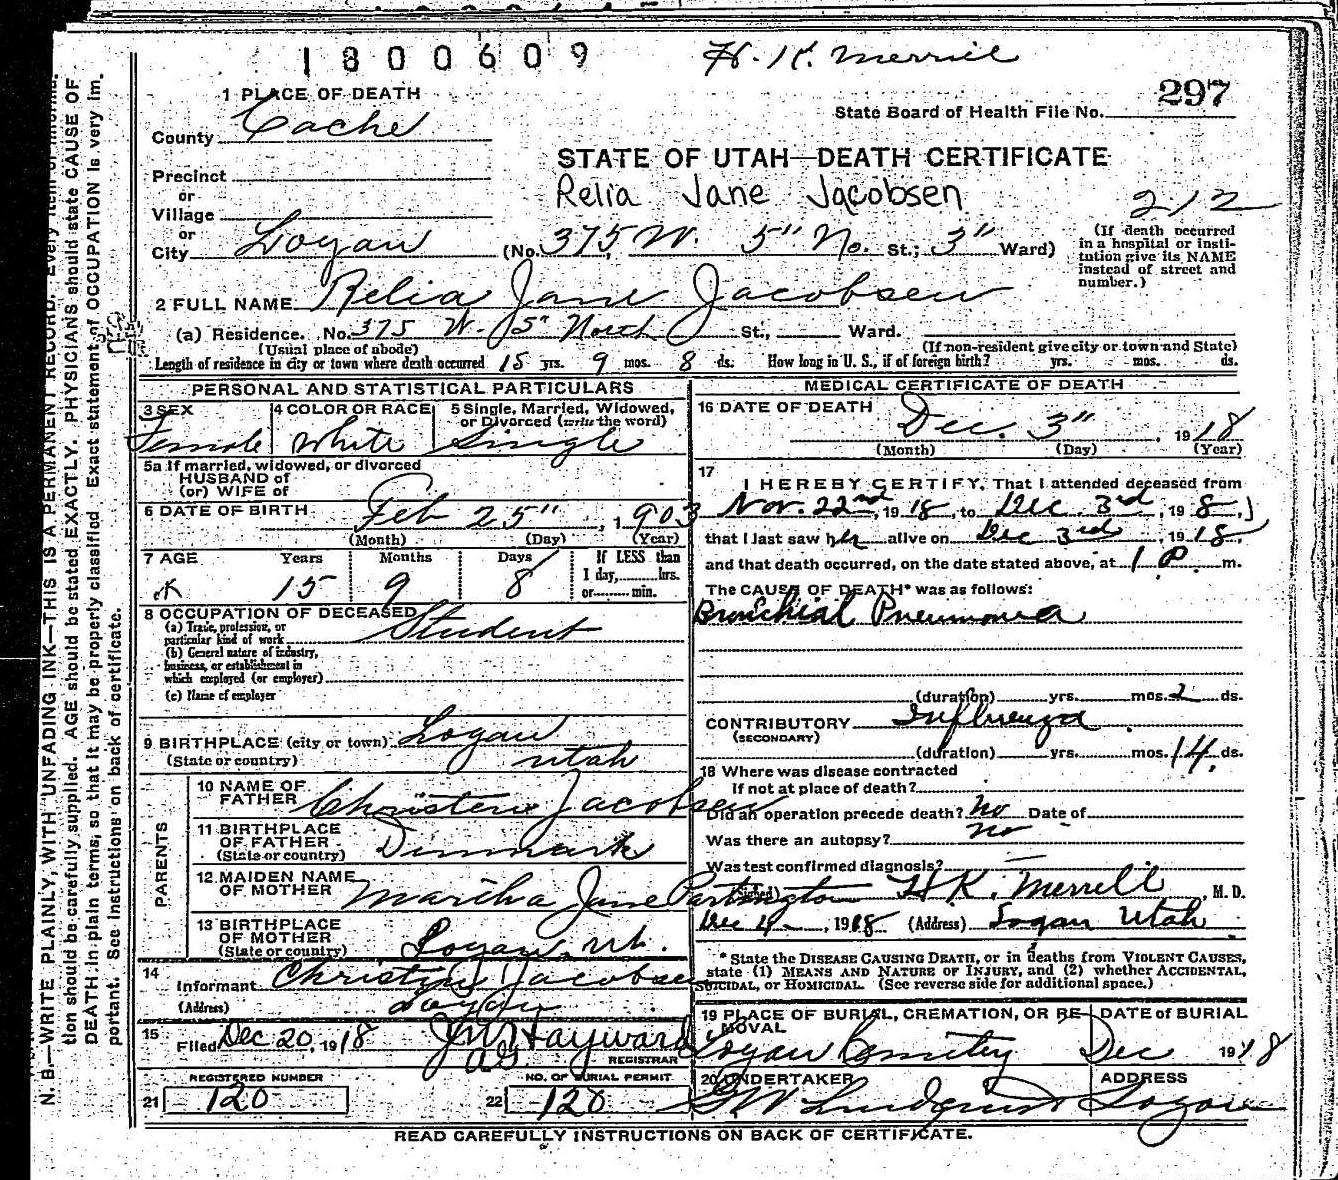 1800609
H. K. Merrill
297
State Board of Health File No.
1 PLACE OF DEATH
County Cache
STATE OF UTAH—DEATH CERTIFICATE
Precinct
or
Relia Jane Jacobsen
Village
or
212
City Logan (No. 375 W. 5" No. St.; 3" Ward)
(If death occurred
in a hospital or insti-
tution give its NAME
instead of street and
number.)
2 FULL NAME Relia Jane Jacobsen
(a) Residence. No. 375 W. 5" North St., Ward.
(Usual place of abode) (If non-resident give city or town and State)
Length of residence in city or town where death occurred 15 yrs. 9 mos. 8 ds. How long in U. S., if of foreign birth? yrs. mos. ds.
PERSONAL AND STATISTICAL PARTICULARS
3 SEX 4 COLOR OR RACE 5 Single, Married, Widowed,
or Divorced (write the word)
Female White Single
5a If married, widowed, or divorced
HUSBAND of
(or) WIFE of
6 DATE OF BIRTH Feb 25", 1903
(Month) (Day) (Year)
7 AGE Years Months Days If LESS than
1 day, hrs.
or min.
15 9 8
8 OCCUPATION OF DECEASED
(a) Trade, profession, or
particular kind of work Student
(b) General nature of industry,
business, or establishment in
which employed (or employer)
(c) Name of employer
9 BIRTHPLACE (city or town) Logan
(State or country) Utah
PARENTS
10 NAME OF
FATHER Christen Jacobsen
11 BIRTHPLACE
OF FATHER
(State or country) Denmark
12 MAIDEN NAME
OF MOTHER Martha Jane Partington
13 BIRTHPLACE
OF MOTHER
(State or country) Logan, Ut.
14
Informant Christen Jacobsen
(Address) Logan
15
Filed Dec 20, 1918 J W Hayward
REGISTRAR
REGISTERED NUMBER NO. OF BURIAL PERMIT
21 120 22 120
MEDICAL CERTIFICATE OF DEATH
16 DATE OF DEATH
Dec. 3", 1918
(Month) (Day) (Year)
17
I HEREBY CERTIFY, That I attended deceased from
Nov. 22nd, 1918, to Dec 3rd, 198,
that I last saw her alive on Dec 3rd, 1918,
and that death occurred, on the date stated above, at 1 P. m.
The CAUSE OF DEATH* was as follows:
Bronchial Pneumonia
(duration) yrs. mos. 2 ds.
CONTRIBUTORY Influenza
(SECONDARY)
(duration) yrs. mos. 14 ds.
18 Where was disease contracted
If not at place of death?
Did an operation precede death? No Date of
Was there an autopsy? no
Was test confirmed diagnosis?
(Signed) H K. Merrill, M. D.
Dec 4, 1918 (Address) Logan Utah
* State the DISEASE CAUSING DEATH, or in deaths from VIOLENT CAUSES,
state (1) MEANS AND NATURE OF INJURY, and (2) whether ACCIDENTAL,
SUICIDAL, or HOMICIDAL. (See reverse side for additional space.)
19 PLACE OF BURIAL, CREMATION, OR RE-
MOVAL
DATE OF BURIAL
Logan Cemetery Dec 1918
20 UNDERTAKER ADDRESS
G W Lindquist Logan
READ CAREFULLY INSTRUCTIONS ON BACK OF CERTIFICATE.
N. B.—WRITE PLAINLY, WITH UNFADING INK—THIS IS A PERMANENT RECORD. Every item of informa-
tion should be carefully supplied. AGE should be stated EXACTLY. PHYSICIANS should state CAUSE OF
DEATH in plain terms, so that it may be properly classified. Exact statement of OCCUPATION is very im-
portant. See Instructions on back of certificate.